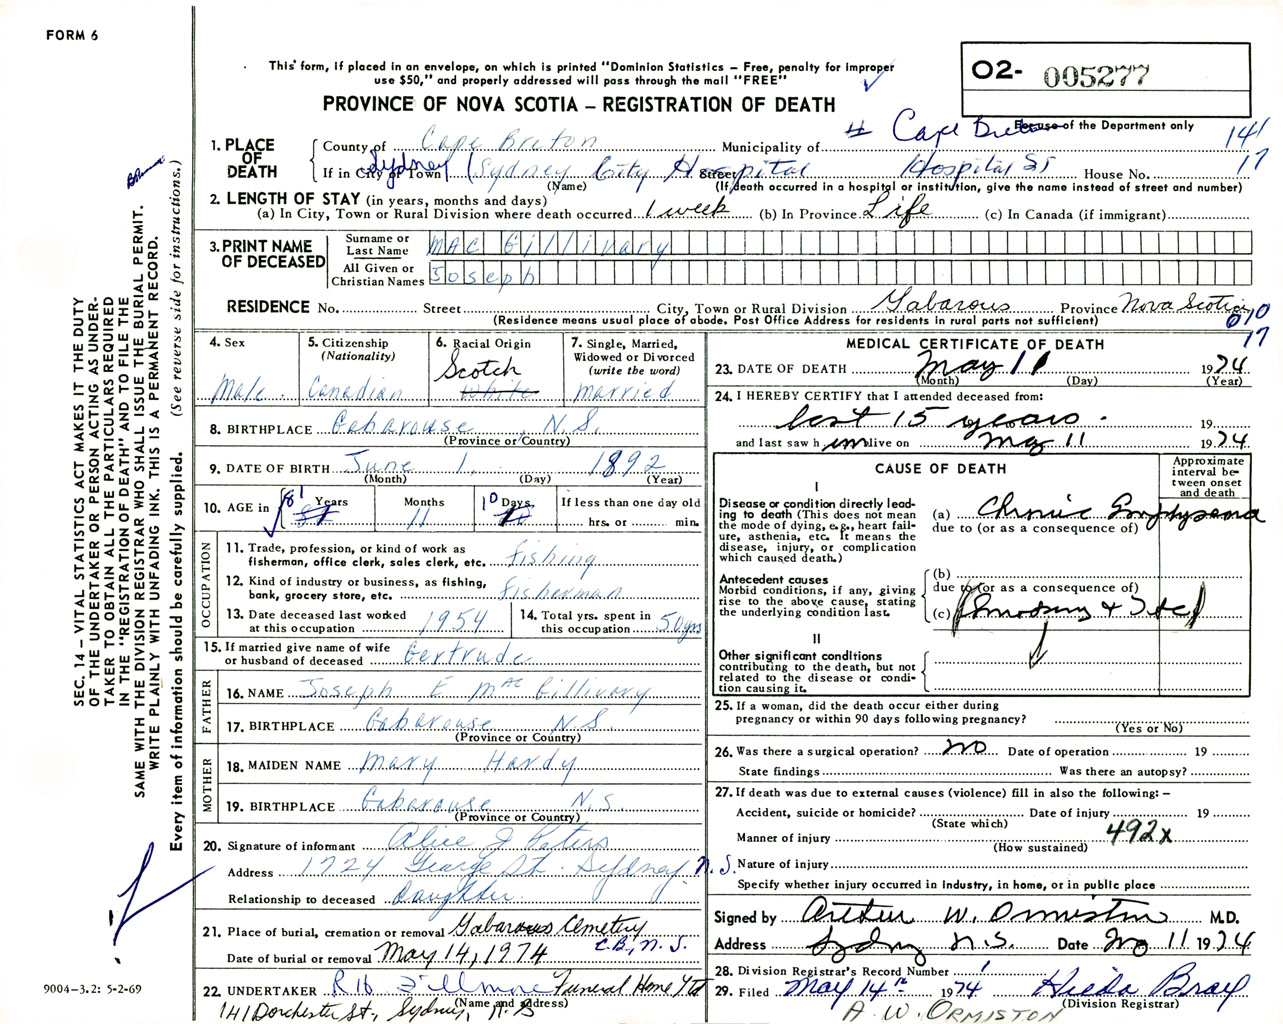 FORM 6
This form, if placed in an envelope, on which is printed "Dominion Statistics – Free, penalty for improper
use $50," and properly addressed will pass through the mail "FREE"
PROVINCE OF NOVA SCOTIA – REGISTRATION OF DEATH
O2- 005277
For use of the Department only
1. PLACE OF DEATH
County of Cape Breton Municipality of # Cape Breton 141
If in City or Town Sydney (Sydney City Hospital Street Hospital St House No. 17
(Name) (If death occurred in a hospital or institution, give the name instead of street and number)
2. LENGTH OF STAY (in years, months and days)
(a) In City, Town or Rural Division where death occurred 1 week (b) In Province Life (c) In Canada (if immigrant)
3. PRINT NAME OF DECEASED
Surname or Last Name Mac Gillivary
All Given or Christian Names Joseph
RESIDENCE No. Street City, Town or Rural Division Gabarous Province Nova Scotia
(Residence means usual place of abode. Post Office Address for residents in rural parts not sufficient)
010
17
4. Sex Male
5. Citizenship (Nationality) Canadian
6. Racial Origin Scotch White
7. Single, Married, Widowed or Divorced (write the word) Married
8. BIRTHPLACE Gabarouse N.S.
(Province or Country)
9. DATE OF BIRTH June 1 1892
(Month) (Day) (Year)
10. AGE in 81 Years Months 11 10 Days If less than one day old
hrs. or min.
OCCUPATION
11. Trade, profession, or kind of work as
fisherman, office clerk, sales clerk, etc. fishing
12. Kind of industry or business, as fishing,
bank, grocery store, etc. fisherman
13. Date deceased last worked
at this occupation 1954
14. Total yrs. spent in
this occupation 50 yrs
15. If married give name of wife
or husband of deceased Gertrude
FATHER
16. NAME Joseph E MacGillivary
17. BIRTHPLACE Gabarouse N.S.
(Province or Country)
MOTHER
18. MAIDEN NAME Mary Hardy
19. BIRTHPLACE Gabarouse N.S.
(Province or Country)
20. Signature of informant Alice J Peters
Address 1724 George St. Sydney, N.S.
Relationship to deceased Daughter
21. Place of burial, cremation or removal Gabarous Cemetery
C.B., N.S.
Date of burial or removal May 14, 1974
22. UNDERTAKER R.H. Fillmore Funeral Home Ltd
(Name and address)
141 Dorchester St., Sydney, N.S
MEDICAL CERTIFICATE OF DEATH
23. DATE OF DEATH May 11 1974
(Month) (Day) (Year)
24. I HEREBY CERTIFY that I attended deceased from:
last 15 years. 19
and last saw him alive on May 11 1974
CAUSE OF DEATH
Approximate interval between onset and death
I
Disease or condition directly leading
to death (This does not mean
the mode of dying, e.g., heart failure,
asthenia, etc. It means the
disease, injury, or complication
which caused death.)
(a) Chronic Emphysema
due to (or as a consequence of)
Antecedent causes
Morbid conditions, if any, giving
rise to the above cause, stating
the underlying condition last.
(b)
due to (or as a consequence of)
(c) (Smoking &
II
Other significant conditions
contributing to the death, but not
related to the disease or condition
causing it.
25. If a woman, did the death occur either during
pregnancy or within 90 days following pregnancy?
(Yes or No)
26. Was there a surgical operation? No Date of operation 19
State findings Was there an autopsy?
27. If death was due to external causes (violence) fill in also the following: –
Accident, suicide or homicide? Date of injury 19
(State which)
Manner of injury 492x
(How sustained)
Nature of injury
Specify whether injury occurred in Industry, in home, or in public place
Signed by Arthur W. Ormiston M.D.
Address Sydney N.S. Date 11 1974
28. Division Registrar's Record Number 1
29. Filed May 14th 1974 Hilda Bray
(Division Registrar)
A. W. ORMISTON
SEC. 14 – VITAL STATISTICS ACT MAKES IT THE DUTY
OF THE UNDERTAKER OR PERSON ACTING AS UNDERTAKER
TO OBTAIN ALL THE PARTICULARS REQUIRED
IN THE "REGISTRATION OF DEATH" AND TO FILE THE
SAME WITH THE DIVISION REGISTRAR WHO SHALL ISSUE THE BURIAL PERMIT.
WRITE PLAINLY WITH UNFADING INK. THIS IS A PERMANENT RECORD.
Every item of information should be carefully supplied. (See reverse side for instructions.)
9004-3.2: 5-2-69